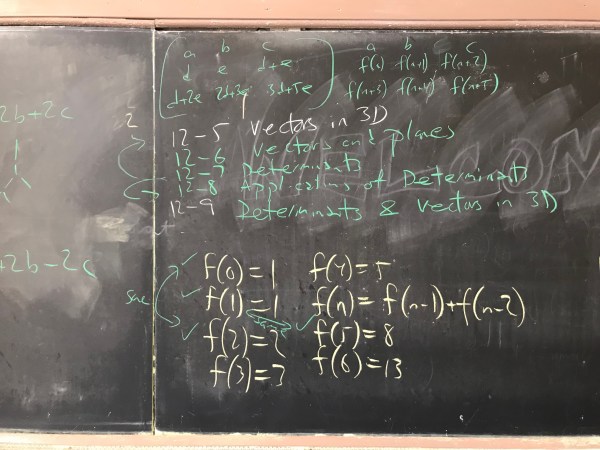 2b+2c
+2b-2c
a b c a b c
d e d+e f(n) f(n+1) f(n+2)
d+2e 2d+3e 3d+5e f(n+3) f(n+4) f(n+5)
12-5 Vectors in 3D
12-6 Vectors and planes
12-7 Determinants
12-8 Applications of Determinants
12-9 Determinants & Vectors in 3D
WELCOM
✓ f(0)=1 f(4)=5
✓ f(1)=1 f(n)=f(n-1)+f(n-2)
✓ f(2)=2 ✓ f(5)=8
f(3)=3 f(6)=13